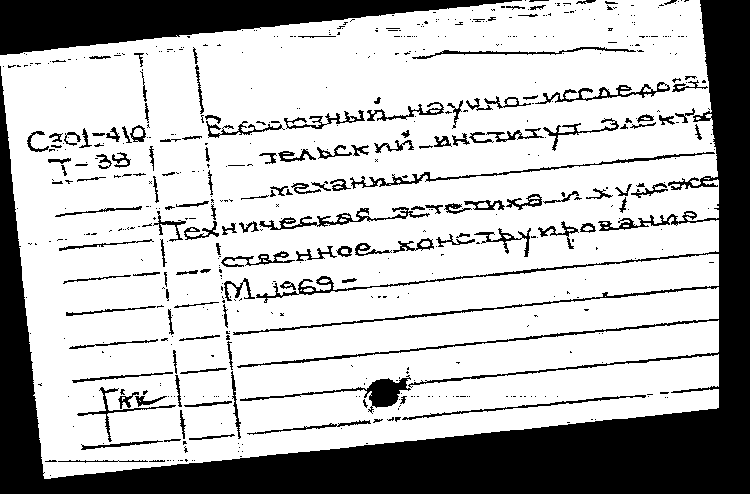 С301-410
Т-38
Всесоюзный научно-исследова-
тельский институт электро
механики
Техническая эстетика и художе
ственное конструирование
М., 1969-
ГАК